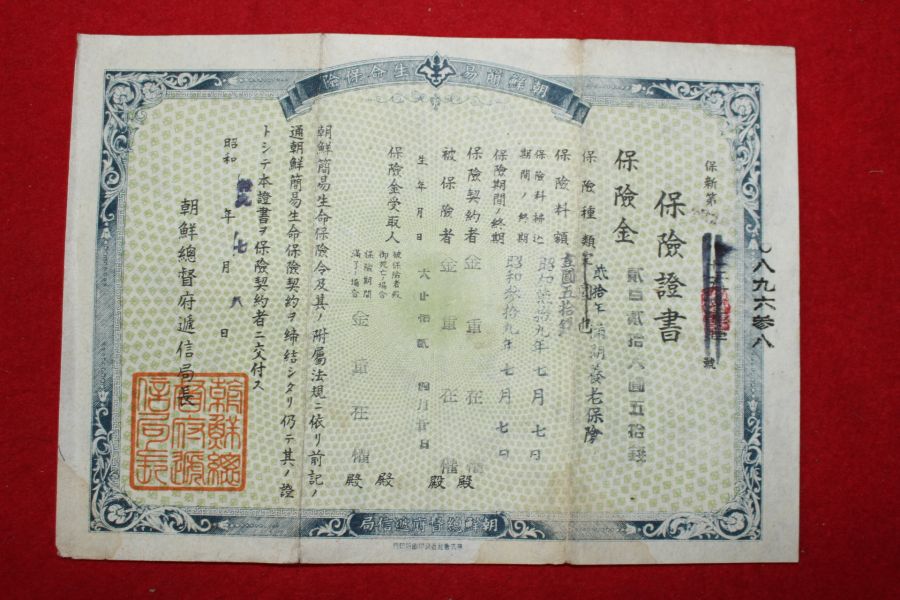 朝鮮簡易生命保險
八九九六参八
保新第 號
保險證書
保險金 貳百貳拾八圓五拾錢
保險種類 貳拾年滿期養老保險
保險料額 壹圓五拾錢
保險料拂込期間ノ終期 昭和参拾九年七月七日
保險期間ノ終期 昭和参拾九年七月七日
保險契約者 金重在權 殿
被保險者 金重在權 殿
生年月日 大正拾貳年四月廿日
保險金受取人
被保險者殿御死亡ノ場合 殿
保險期間滿了ノ場合 金重在權 殿
朝鮮簡易生命保險令及其ノ附屬法規ニ依リ前記ノ
通朝鮮簡易生命保險契約ヲ締結シタリ仍テ其ノ證
トシテ本證書ヲ保險契約者ニ交付ス
昭和 年七月八日
朝鮮總督府遞信局長
朝鮮總督府遞信局長
朝鮮總督府遞信局